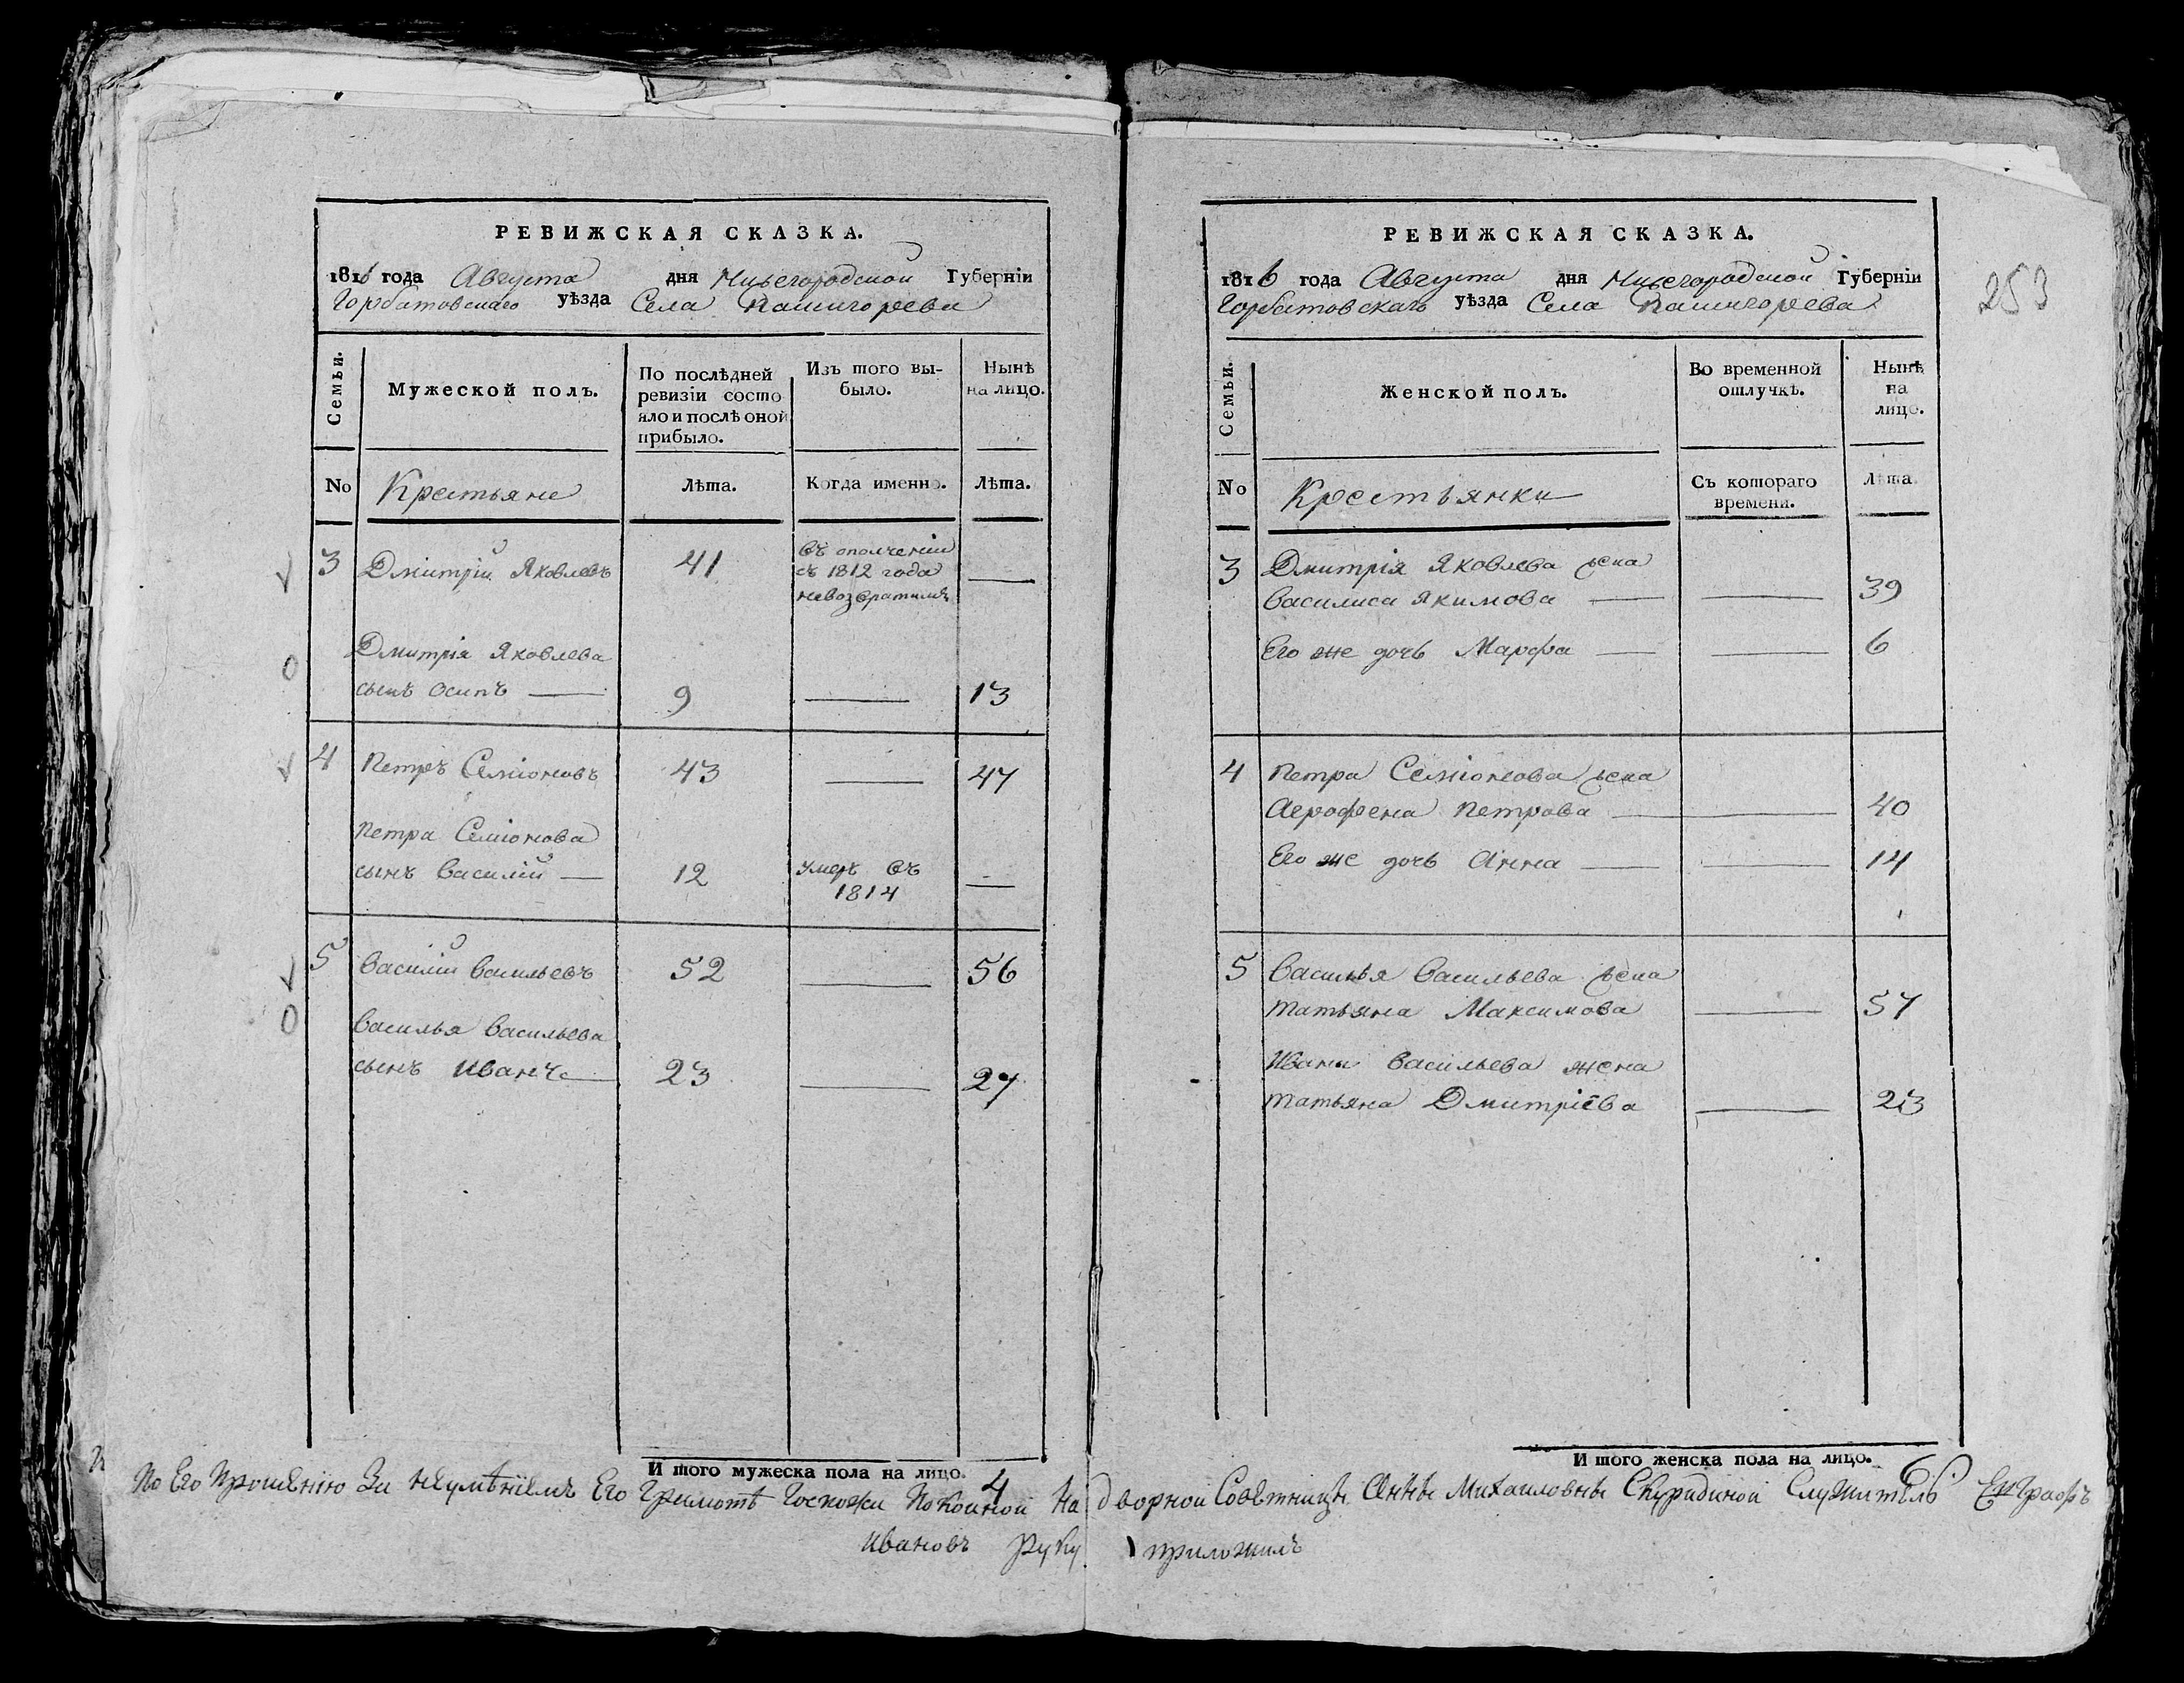 РЕВИЖСКАЯ СКАЗКА.
1816 года Августа дня Нижегородской Губерніи
Горбатовскаго уѣзда Села
Семьи.
Мужеской полъ.
По послѣдней ревизіи состояло и послѣ оной прибыло.
Изъ того выбыло.
Нынѣ на лицо.
No Крестьяне Лѣта. Когда именно. Лѣта.
3 Дмитрій Яковлевъ 41 въ ополченіи съ 1812 года невозвратился —
Дмитрія Яковлева
сынъ Осипъ — 9 — 13
4 Петръ Семіоновъ 43 — 47
Петра Семіонова
сынъ Василій — 12 умеръ въ 1814 —
5 Василій Васильевъ 52 — 56
Василья Васильева
сынъ Иванъ — 23 — 27
И того мужеска пола на лицо. 4
РЕВИЖСКАЯ СКАЗКА.
1816 года Августа дня Нижегородской Губерніи
Горбатовскаго уѣзда Села
253
Семьи.
Женской полъ.
Во временной отлучкѣ.
Нынѣ на лицо.
No Крестьянки Съ котораго времени. Лѣта.
3 Дмитрія Яковлева жена
Василиса Якимова — — 39
Его же дочь Марфа — — 6
4 Петра Семіонова жена
Агрофена Петрова — 40
Его же дочь Анна — — 14
5 Василья Васильева жена
Татьяна Максимова — 57
Ивана Васильева жена
Татьяна Дмитріева — 23
И того женска пола на лицо. 6
По Его Прошенію За неумѣніемъ Его Грамотѣ Госпожи Покойной Надворной Совѣтницы Анны Михаиловны Служитель Евграфъ
Ивановъ руку приложилъ